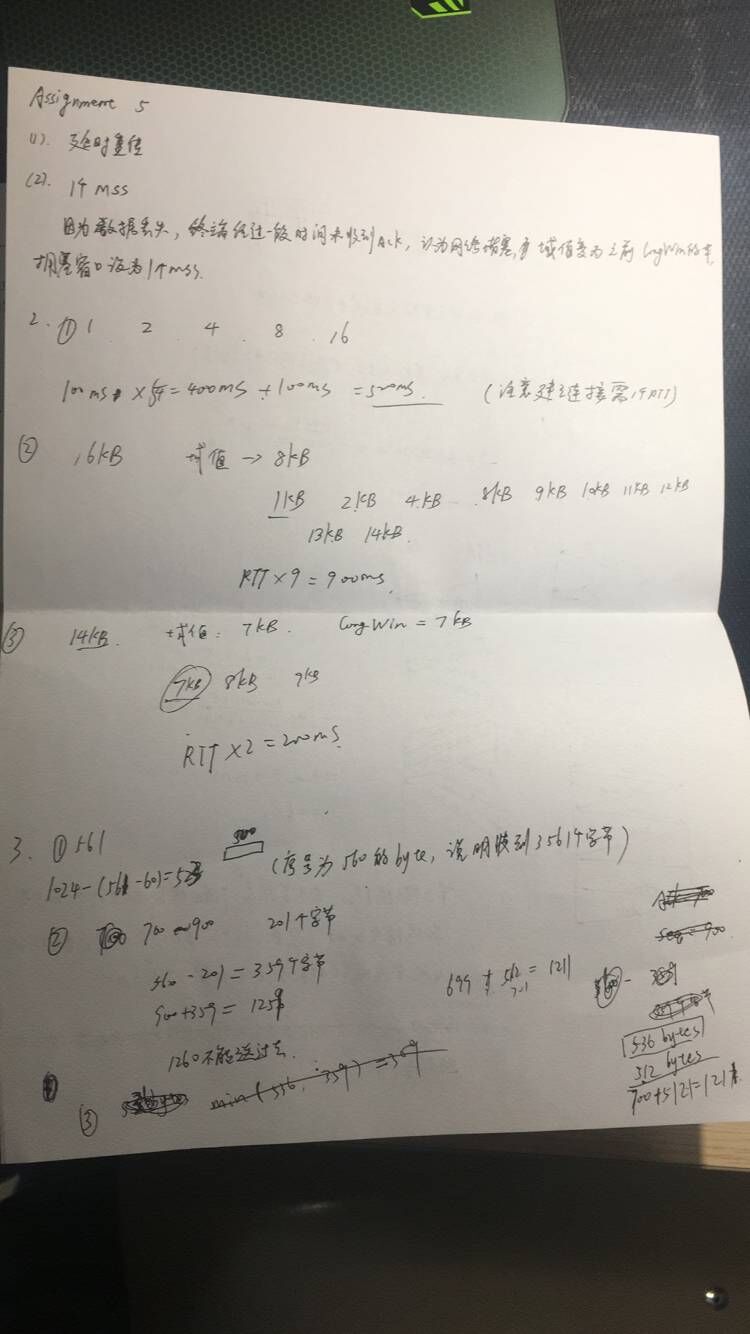 Assignment 5
(1). 超时重传
(2). 1个MSS
因为数据丢失，终端经过一段时间未收到Ack，认为网络拥塞，域值变为之前CongWin的半，
拥塞窗口设为1个MSS.
2. ① 1 2 4 8 16
100ms × 4 = 400ms + 100ms = 500ms. (注意建立连接需1个RTT)
② 16KB 域值 → 8KB
1KB 2KB 4KB 8KB 9KB 10KB 11KB 12KB
13KB 14KB.
RTT × 9 = 900ms.
③ 14KB. 域值: 7KB. CongWin = 7KB
7KB 8KB 9KB
RTT × 2 = 200ms.
3. ① 561 (序号为560的byte, 说明收到561个字节)
1024-(561-60)=523
② 700~900 201个字节
560 - 201 = 359个字节
900+359 = 1259
699 + 512 = 1211
1260不能送过去.
536 bytes
512 bytes
700+512-1=1211
③ min(536, 359) = 359